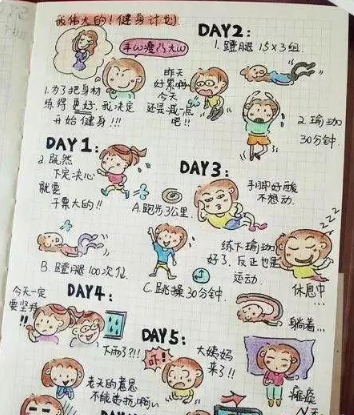 我伟大的！健身计划
1.为了把身材
练得更好，我决定
开始健身!!!
昨天
好累啊
今天
还是减一点
吧!!
DAY2:
1.蹬腿 15×3组.
2.瑜珈
30分钟.
DAY1:
2.既然
下定决心
就要
干票大的!!
A.跑步3公里.
B.蹬腿100次/组
C.跳绳30分钟.
DAY3:
手脚好酸
不想动.
练下瑜珈
好了，反正也是
运动.
休息中...
躺着...
DAY4:
今天一定
要坚持
!!
下雨了?!!
老天的意思
不能违抗啊
DAY5:
大姨妈
来了!!
瘫痪